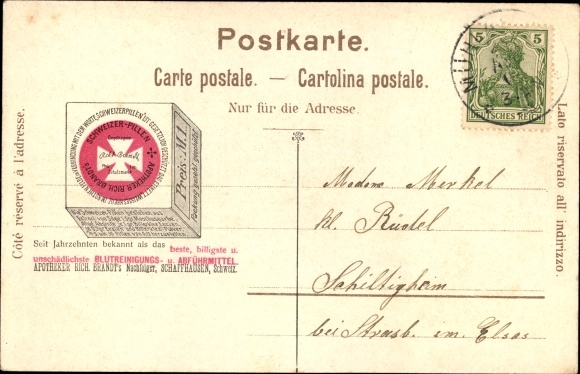 Postkarte.
Carte postale. — Cartolina postale.
Nur für die Adresse.
Côté réservé à l'adresse.
Lato riservato all' indirizzo.
5 5
DEUTSCHES REICH
SCHWEIZER-PILLEN
APOTHEKER RICH. BRANDT'S
Preis: M.1.
Seit Jahrzehnten bekannt als das beste, billigste u.
unschädlichste BLUTREINIGUNGS- u. ABFÜHRMITTEL.
APOTHEKER RICH. BRANDT's Nachfolger, SCHAFFHAUSEN, Schweiz.
Madame Merkel
kl. Rüstel
Schiltigheim
bei Strasb. im Elsas